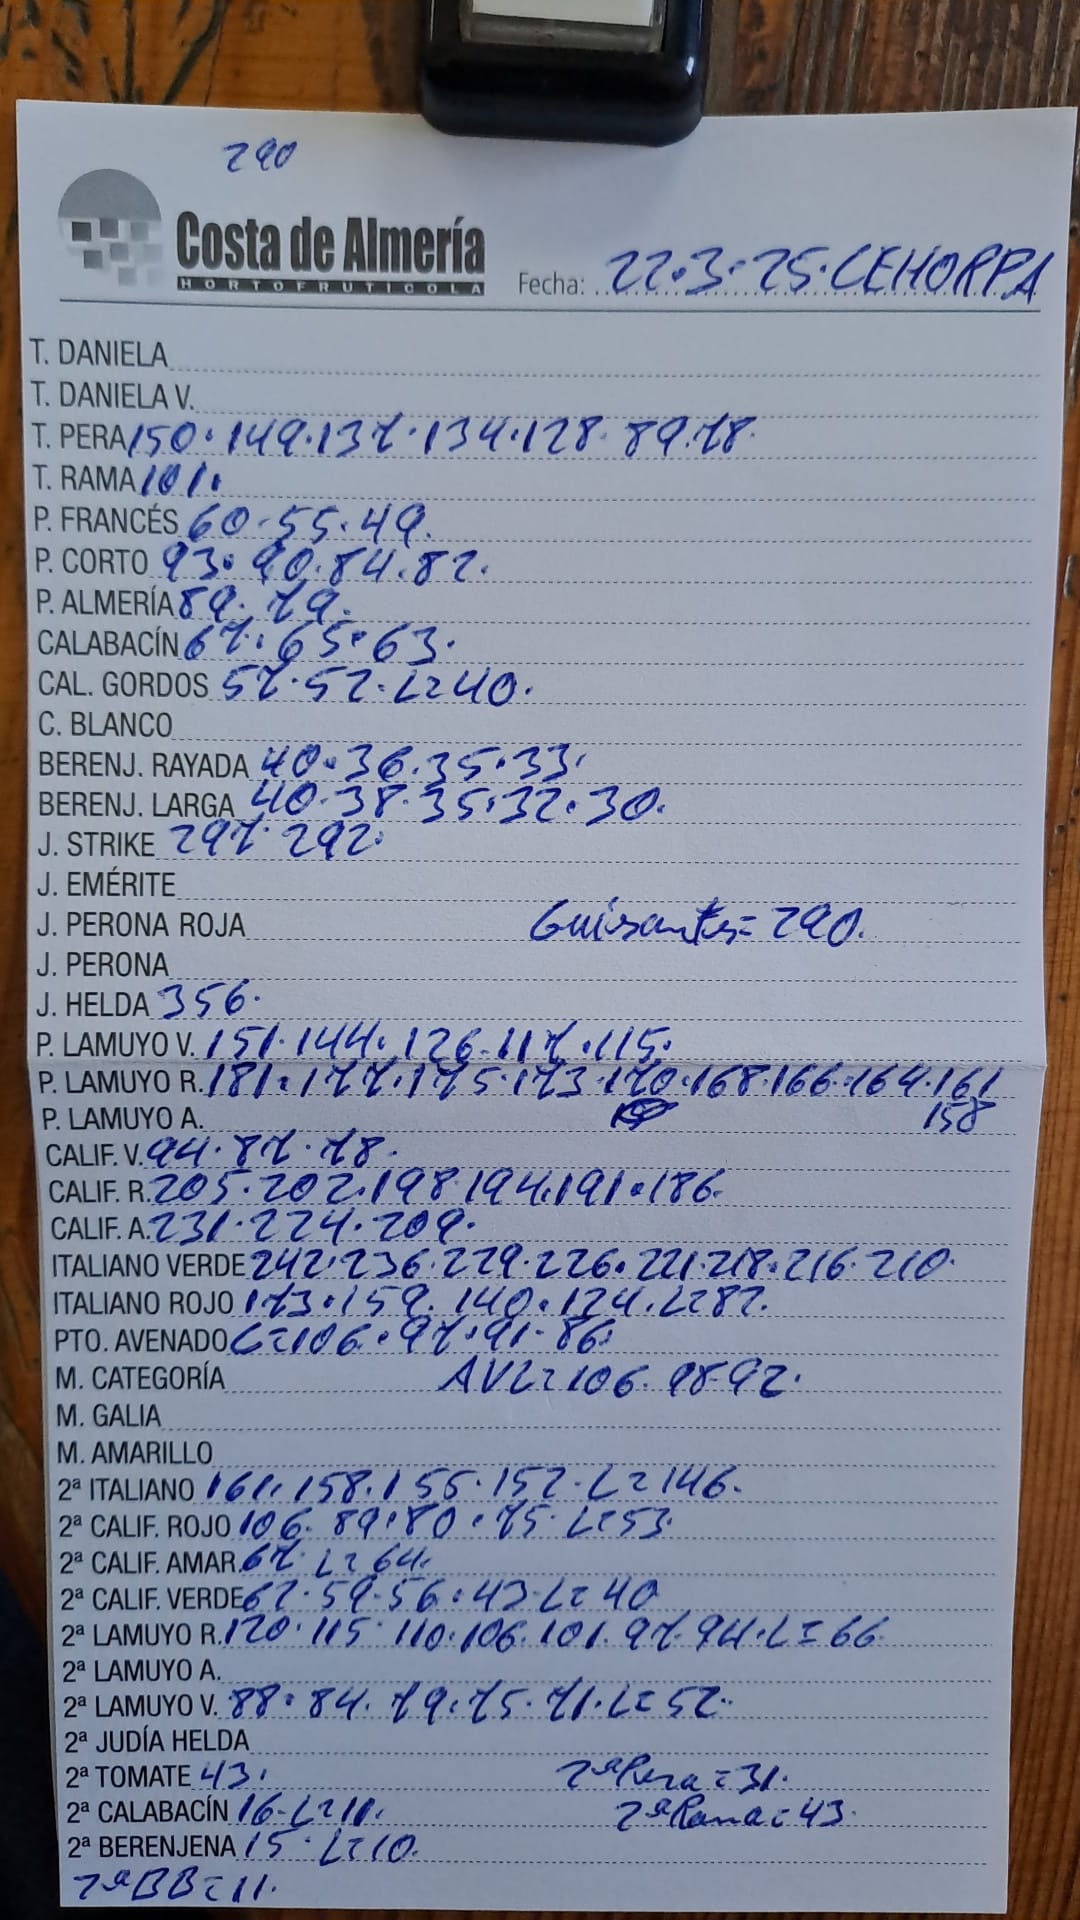 290
Costa de Almería
HORTOFRUTICOLA
Fecha: 22.3.25. CEHORPA
T. DANIELA
T. DANIELA V.
T. PERA 150. 149. 137. 134. 128. 89. 78.
T. RAMA 101.
P. FRANCÉS 60. 55. 49.
P. CORTO 93. 90. 84. 82.
P. ALMERÍA 89. 79.
CALABACÍN 67. 65. 63.
CAL. GORDOS 57. 52. L=40.
C. BLANCO
BERENJ. RAYADA 40. 36. 35. 33.
BERENJ. LARGA 40. 38. 35. 32. 30.
J. STRIKE 297. 292.
J. EMÉRITE
J. PERONA ROJA Guisantes= 290.
J. PERONA
J. HELDA 356.
P. LAMUYO V. 151. 144. 126. 117. 115.
P. LAMUYO R. 181. 177. 175. 173. 170. 168. 166. 164. 161
P. LAMUYO A. 158
CALIF. V. 94. 87. 78.
CALIF. R. 205. 202. 198. 194. 191. 186.
CALIF. A. 231. 224. 209.
ITALIANO VERDE 242. 236. 229. 226. 221. 218. 216. 210.
ITALIANO ROJO 173. 159. 140. 124. L=82.
PTO. AVENADO L=106. 97. 91. 86.
M. CATEGORÍA AVL=106. 98. 92.
M. GALIA
M. AMARILLO
2ª ITALIANO 161. 158. 155. 152. L=146.
2ª CALIF. ROJO 106. 89. 80. 75. L=53.
2ª CALIF. AMAR. 67. L=64.
2ª CALIF. VERDE 62. 59. 56. 43. L=40
2ª LAMUYO R. 120. 115. 110. 106. 101. 97. 94. L=66
2ª LAMUYO A.
2ª LAMUYO V. 88. 84. 79. 75. 71. L=52.
2ª JUDÍA HELDA
2ª TOMATE 43. 2ª Pera=31.
2ª CALABACÍN 16. L=11. 2ª Rama=43.
2ª BERENJENA 15. L=10.
2ª BB=11.